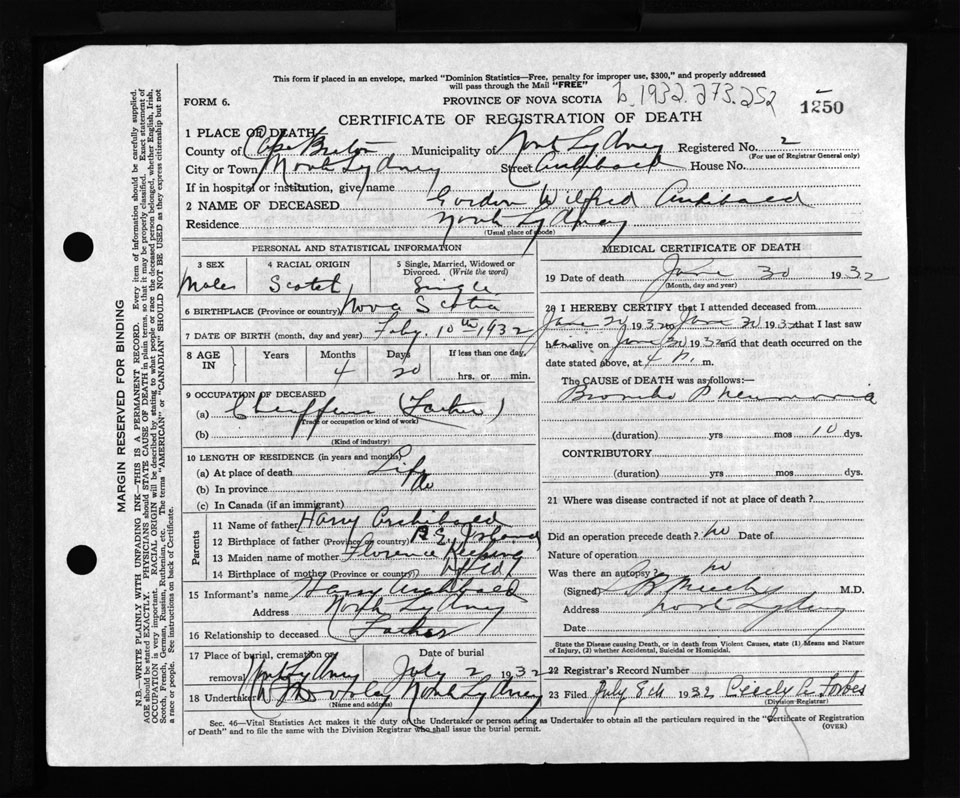 This form if placed in an envelope, marked "Dominion Statistics—Free, penalty for improper use, $300," and properly addressed
will pass through the Mail "FREE"
FORM 6.
PROVINCE OF NOVA SCOTIA
b. 1932. 273. 252
1250
CERTIFICATE OF REGISTRATION OF DEATH
1 PLACE OF DEATH
County of Cape Breton Municipality of North Sydney Registered No. 2
(For use of Registrar General only)
City or Town North Sydney Street Archibald House No.
If in hospital or institution, give name
2 NAME OF DECEASED Gordon Wilfred Archibald
Residence North Sydney
(Usual place of abode)
PERSONAL AND STATISTICAL INFORMATION
3 SEX
4 RACIAL ORIGIN
5 Single, Married, Widowed or Divorced. (Write the word)
Male Scotch Single
6 BIRTHPLACE (Province or country) Nova Scotia
7 DATE OF BIRTH (month, day and year) Feby. 10th 1932
8 AGE IN Years Months Days If less than one day,
4 20 hrs. or min.
9 OCCUPATION OF DECEASED
(a) Chauffeur (Father)
Trade or occupation or kind of work
(b)
(Kind of industry)
10 LENGTH OF RESIDENCE (in years and months)
(a) At place of death Life
(b) In province do
(c) In Canada (if an immigrant)
Parents
11 Name of father Harry Archibald
12 Birthplace of father (Province or country) P E Island
13 Maiden name of mother Florence Keeping
14 Birthplace of mother (Province or country) Nfld
15 Informant's name Harry Archibald
Address North Sydney
16 Relationship to deceased Father
17 Place of burial, cremation or removal North Sydney
Date of burial
July 2 1932
18 Undertaker North Sydney
(Name and address)
MEDICAL CERTIFICATE OF DEATH
19 Date of death June 30 1932
(Month, day and year)
20 I HEREBY CERTIFY that I attended deceased from
June 20 1932 to June 30 1932 that I last saw
him alive on June 30 1932 and that death occurred on the
date stated above, at 4 P. m.
The CAUSE OF DEATH was as follows:—
Broncho Pneumonia
(duration) yrs mos 10 dys.
CONTRIBUTORY
(duration) yrs. mos. dys.
21 Where was disease contracted if not at place of death?
Did an operation precede death? no Date of
Nature of operation
Was there an autopsy? no
(Signed) M.D.
Address North Sydney
Date
State the Disease causing Death, or in death from Violent Causes, state (1) Means and Nature
of Injury, (2) whether Accidental, Suicidal or Homicidal.
22 Registrar's Record Number
23 Filed July 8th 1932 Cicely A. Forbes
(Division Registrar)
Sec. 46—Vital Statistics Act makes it the duty of the Undertaker or person acting as Undertaker to obtain all the particulars required in the "Certificate of Registration
of Death" and to file the same with the Division Registrar who shall issue the burial permit.
(OVER)
MARGIN RESERVED FOR BINDING
N.B.—WRITE PLAINLY WITH UNFADING INK—THIS IS A PERMANENT RECORD. Every item of information should be carefully supplied.
AGE should be stated EXACTLY. PHYSICIANS should STATE CAUSE OF DEATH in plain terms, so that it may be properly classified. Exact statement of
OCCUPATION is very important. RACIAL ORIGIN will be described by stating to what people or race the deceased person belonged, whether English, Irish,
Scotch, French, German, Russian, Ruthenian, etc. The terms "AMERICAN" or "CANADIAN" SHOULD NOT BE USED as they express citizenship but not
a race or people. See instructions on back of Certificate.